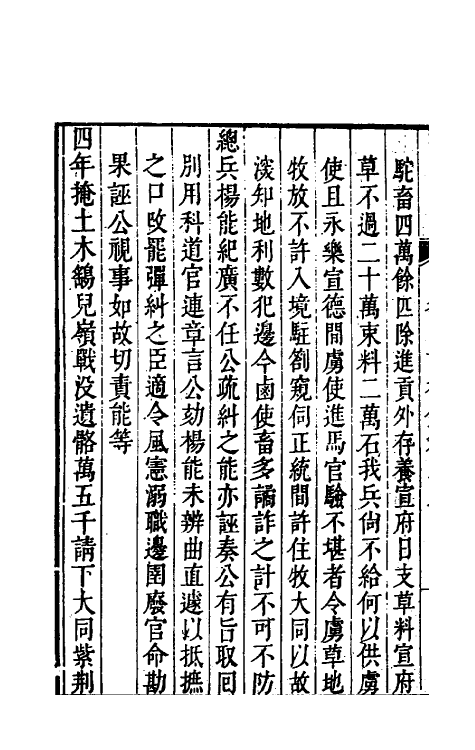 駝畜四萬餘匹除進貢外存養宣府日支草料宣府
草不過二十萬束料二萬石我兵尙不給何以供虜
使且永樂宣德間虜使進馬官驗不堪者令虜草地
牧放不許入境駐劄窺伺正統間許住牧大同以故
深知地利數犯邊今鹵使畜多譎詐之計不可不防
總兵楊能紀廣不任公疏糾之能亦誣奏公有旨取回
別用科道官連章言公劾楊能未辨曲直遽以抵摭
之口攺罷彈糾之臣適令風憲溺職邊圉廢官命勘
果誣公視事如故切責能等
四年掩土木鷂兒嶺戰没遺骼萬五千請下大同紫荆